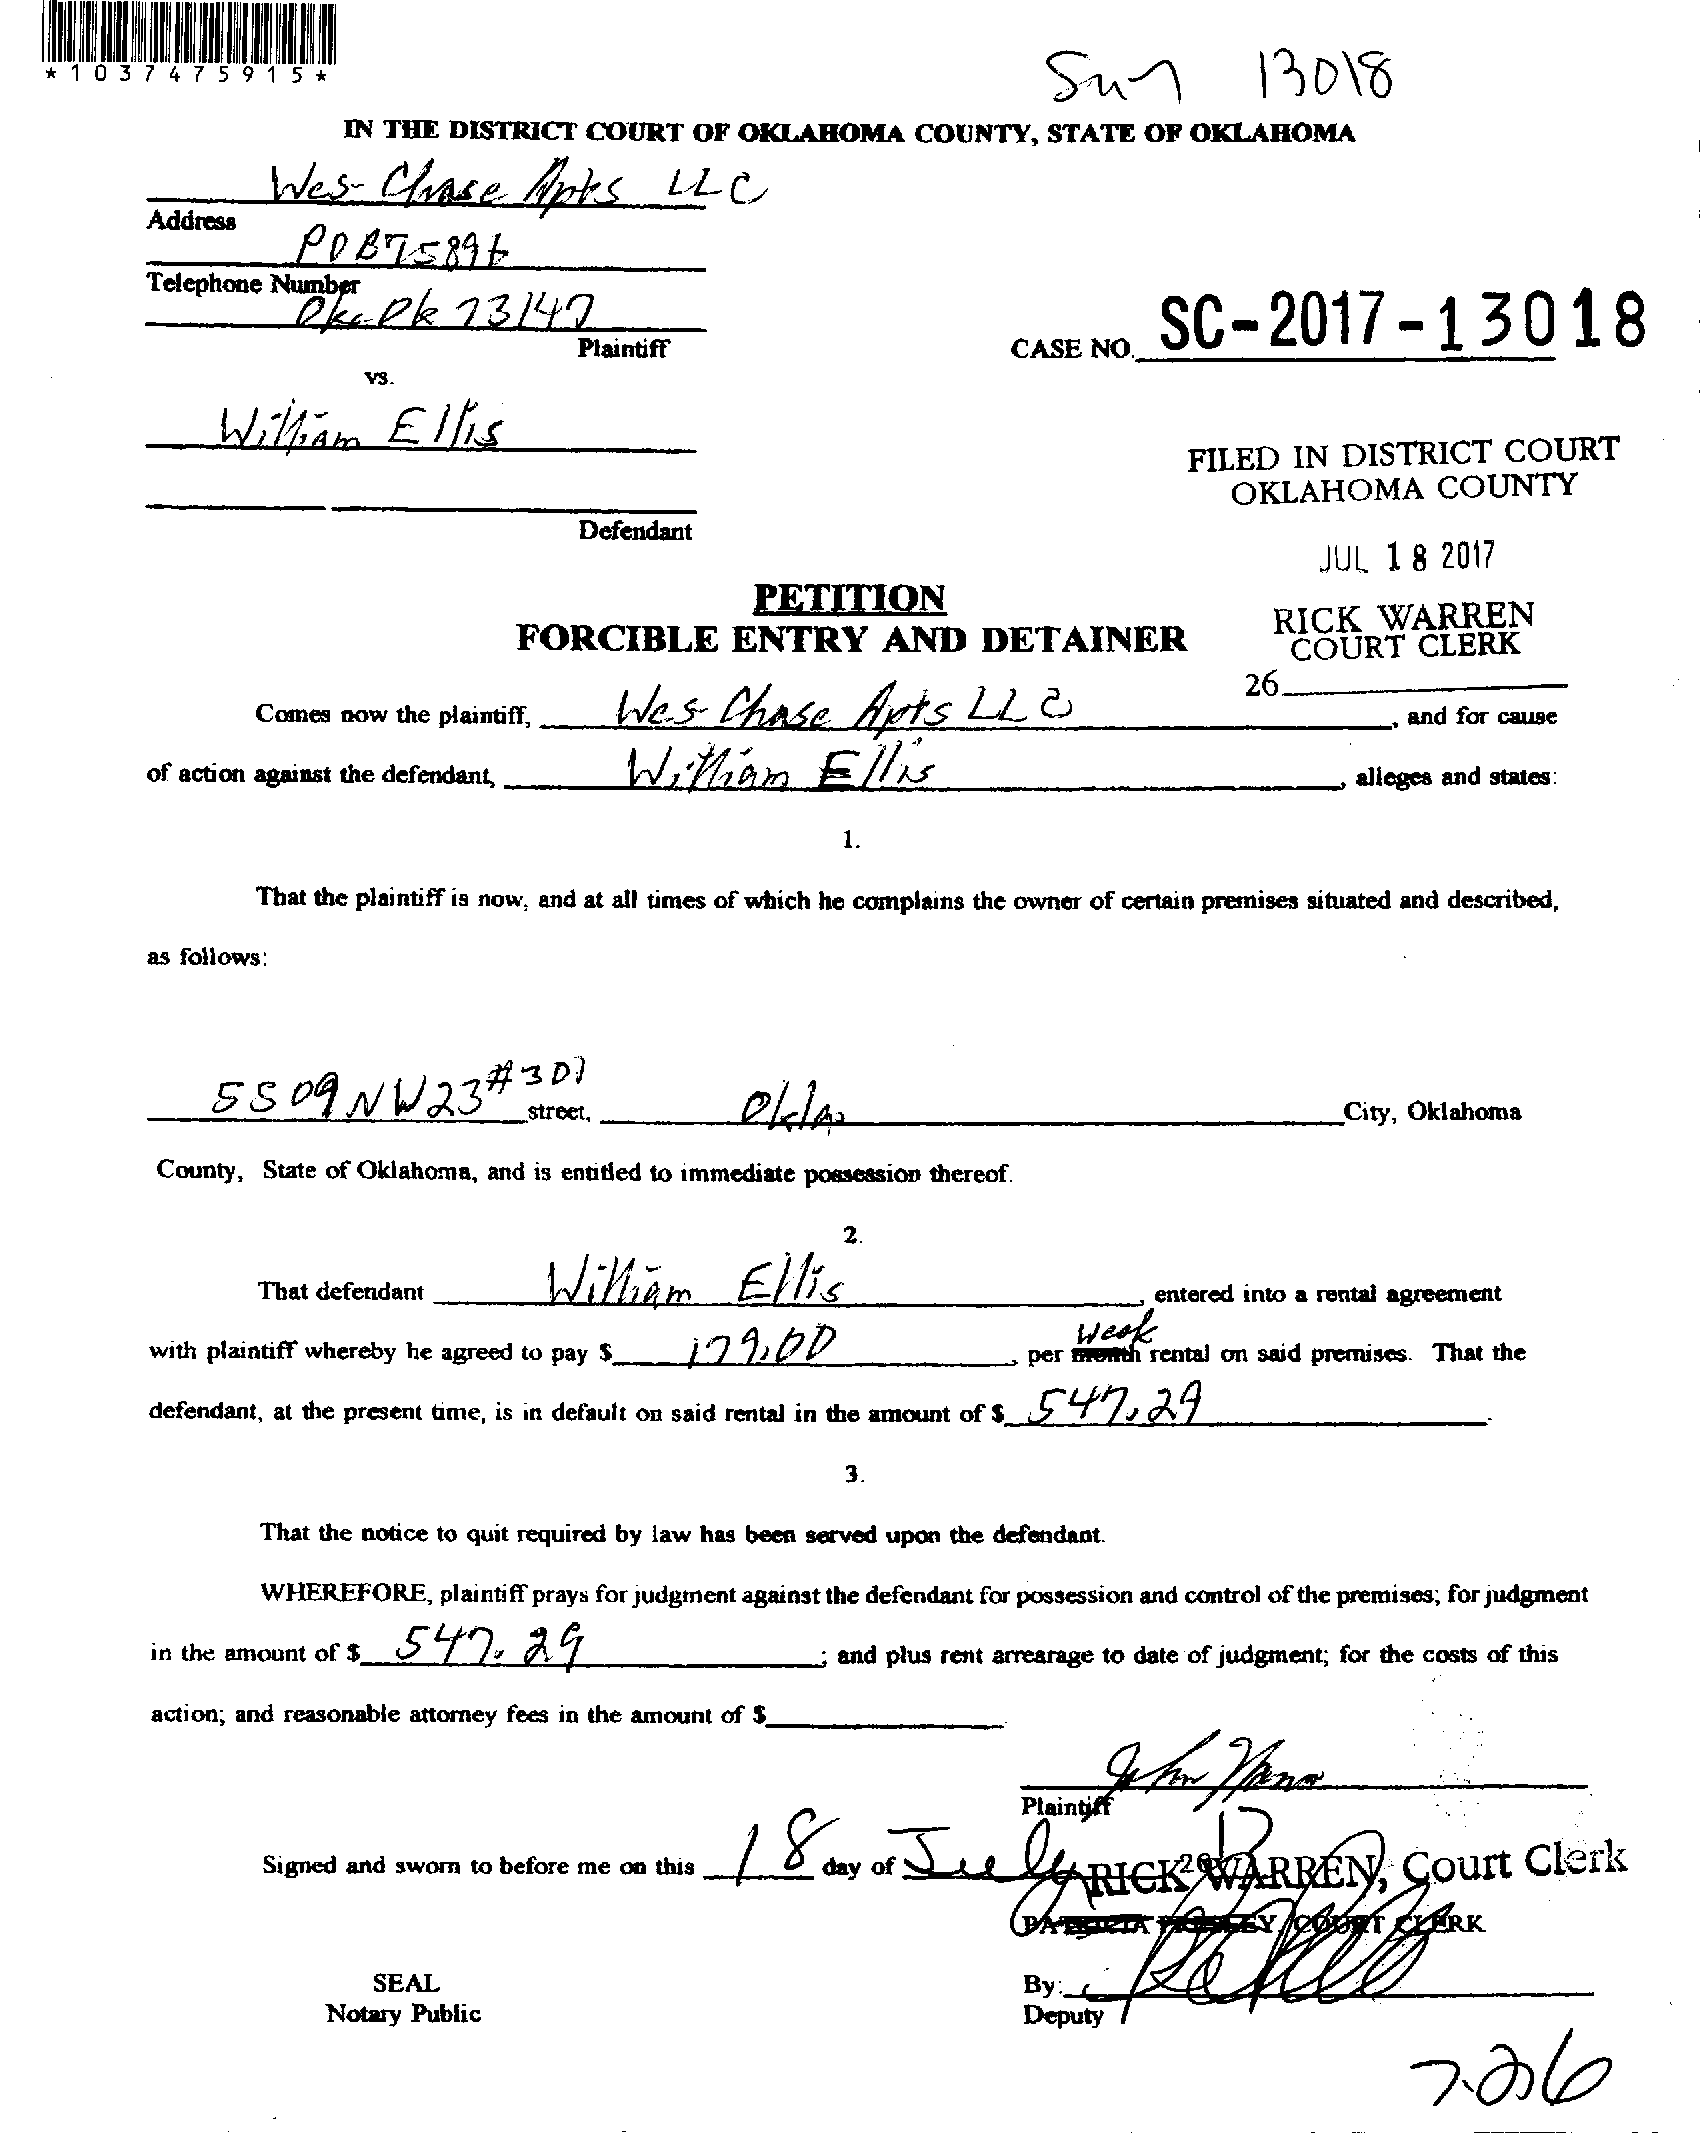 *1037475915*
13018
IN THE DISTRICT COURT OF OKLAHOMA COUNTY, STATE OF OKLAHOMA
Wes-Chase Apts LLC
Address
POB75896
Telephone Number
Okc Ok 73147
Plaintiff
CASE NO. SC-2017-13018
vs.
William Ellis
FILED IN DISTRICT COURT
OKLAHOMA COUNTY
Defendant
JUL 18 2017
PETITION
FORCIBLE ENTRY AND DETAINER
RICK WARREN
COURT CLERK
26
Comes now the plaintiff, Wes-Chase Apts LLC, and for cause
of action against the defendant, William Ellis, alleges and states:
1.
That the plaintiff is now, and at all times of which he complains the owner of certain premises situated and described,
as follows:
5509 NW23 #301 street, Okla City, Oklahoma
County, State of Oklahoma, and is entitled to immediate possession thereof.
2.
That defendant William Ellis, entered into a rental agreement
with plaintiff whereby he agreed to pay $ 179.00, per month week rental on said premises. That the
defendant, at the present time, is in default on said rental in the amount of $ 547.29.
3.
That the notice to quit required by law has been served upon the defendant.
WHEREFORE, plaintiff prays for judgment against the defendant for possession and control of the premises; for judgment
in the amount of $ 547.29; and plus rent arrearage to date of judgment; for the costs of this
action; and reasonable attorney fees in the amount of $
John
Plaintiff
Signed and sworn to before me on this 18 day of July 20
RICK WARREN, Court Clerk
PATRICIA PRESLEY, COURT CLERK
SEAL
Notary Public
By:
Deputy
7-26